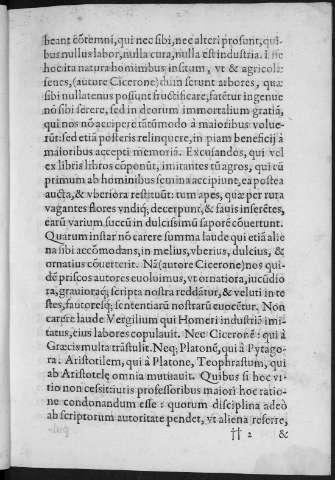 beant cõtemni, qui nec sibi, nec alteri prosunt, qui-
bus nullus labor, nulla cura, nulla est industria.
hoc ita natura hominibus insitum, vt & agricolæ
senes, (autore Cicerone) dum serunt arbores, quæ
sibi nullatenus possunt fructificare, fatẽtur ingenue
nõ sibi serere, sed in deorum immortalium gratiã,
qui nos nõ accipere tãtũmodo à maioribus volue-
rũt: sed etiã posteris relinquere, in piam beneficij à
maioribus accepti memoriã. Excusandos, qui vel
ex libris libros cõponũt, imitantes tũ agros, qui cũ
primum ab hominibus semina accipiunt, ea postea
aucta, & vberiora restituũt: tum apes, quæ per ruta
vagantes flores vndiq; decerpunt, & fauis inserẽtes,
earũ varium succũ in dulcissimũ saporẽ cõuertunt.
Quarum instar nõ carere summa laude qui etiã alie
na sibi accõmodans, in melius, vberius, dulcius, &
ornatius cõuerterit. Nã (autore Cicerone) nos qui-
dẽ priscos autores euoluimus, vt ornatiora, iucũdio
ra, grauioraq; scripta nostra reddãtur, & veluti in te
stes, fautoresq; sententiarũ nostrarũ euocẽtur. Non
carere laude Vergilium qui Homeri industriã imi-
tatus, eius labores copulauit. Nec Ciceronẽ: qui à
Græcis multa trãstulit. Neq; Platonẽ, qui à Pytago-
ra: Aristotilem, qui à Platone, Teophrastum, qui
ab Aristotele omnia mutuauit. Quibus si hoc vi-
tio non cessit, iuris professoribus maiori hoc ratio-
ne condonandum esse: quorum disciplina adeò
ab scriptorum autoritate pendet, vt aliena referre,
†† 2 &